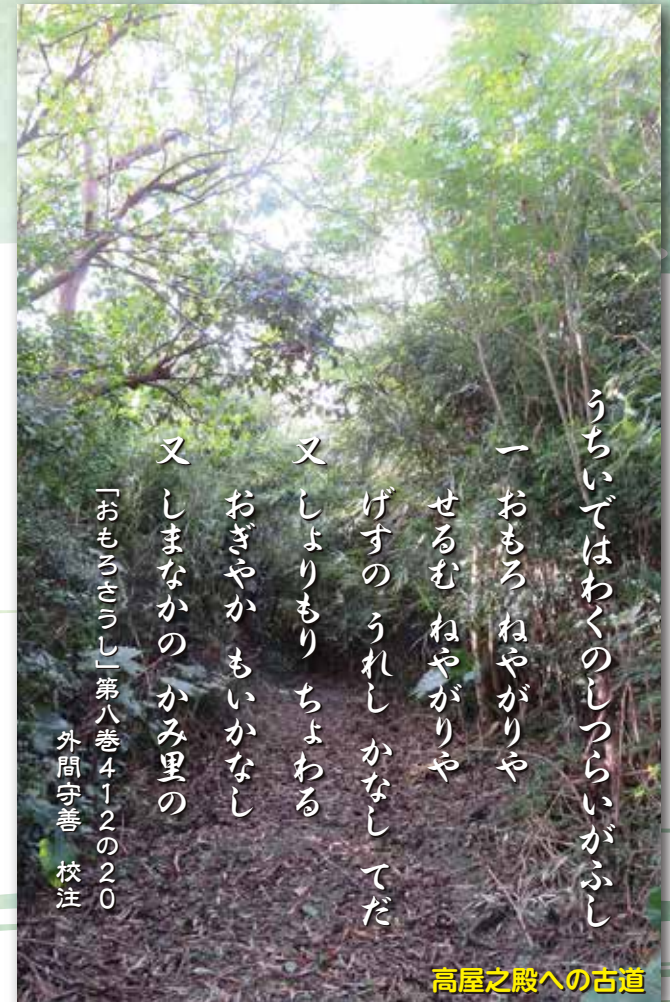 うちいではわくのしつらいがふし
一 おもろ ねやがりや
せるむ ねやがりや
げすの うれし かなし てだ
又 しょりもり ちよわる
おぎやか もいかなし
又 しまなかの かみ里の
「おもろさうし」第八巻412の20
外間守善 校注
高屋之殿への古道